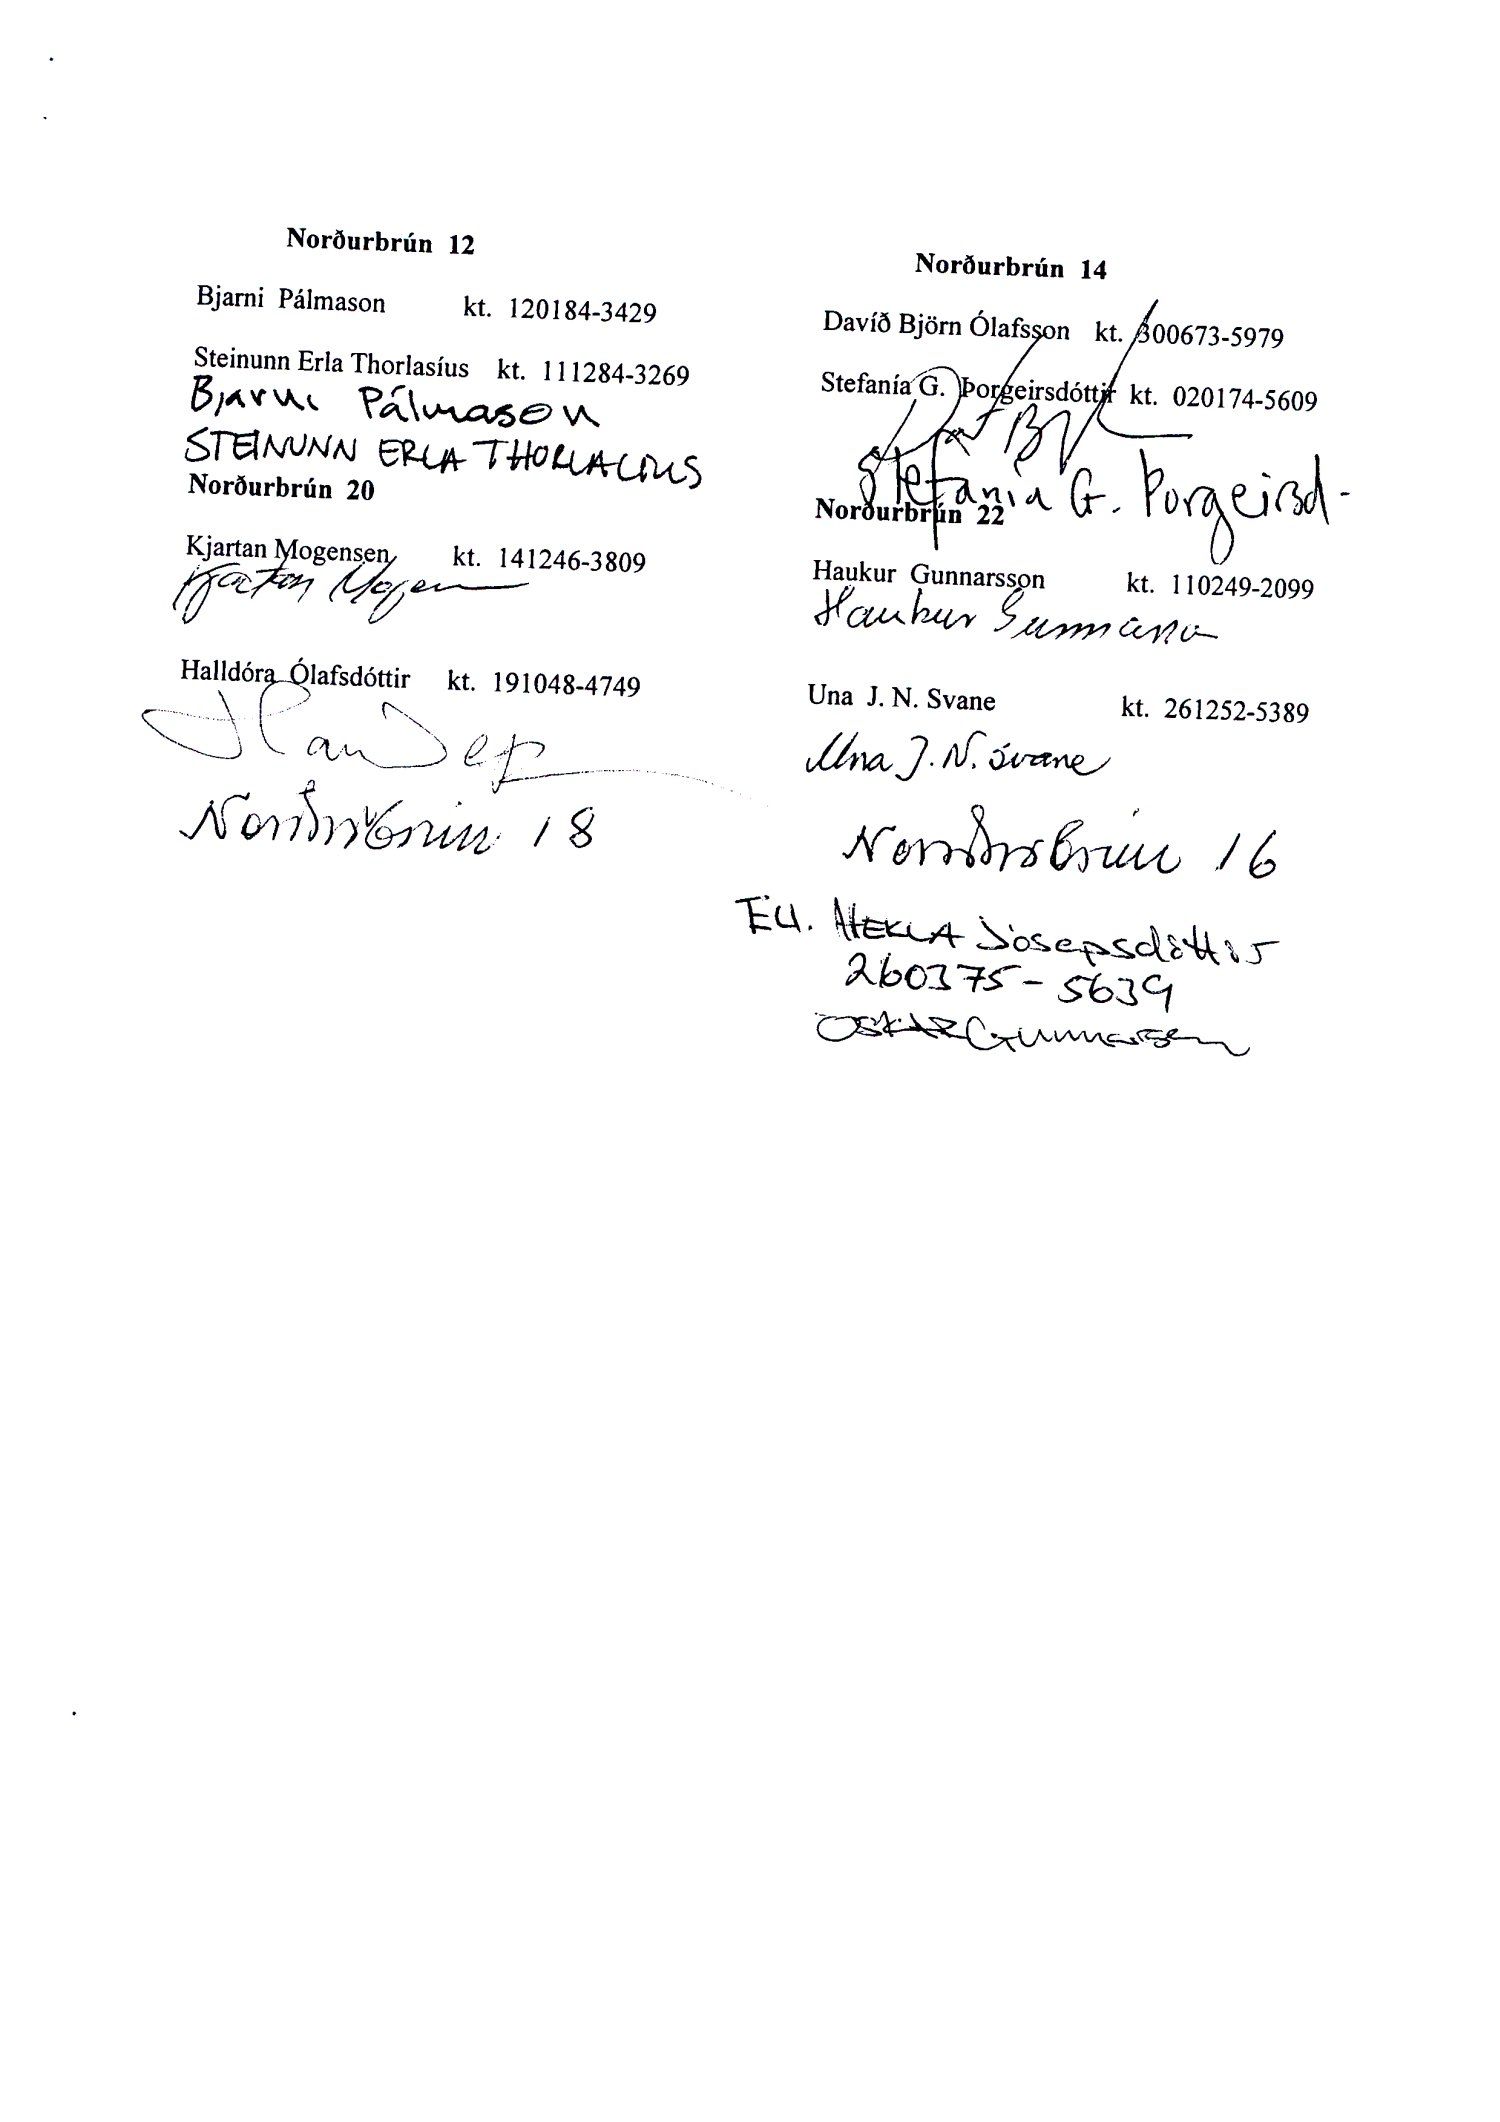 Norðurbrún 12
Bjarni Pálmason kt. 120184-3429
Steinunn Erla Thorlasíus kt. 111284-3269
Bjarni Pálmason
STEINUNN ERLA THORLACIUS
Norðurbrún 20
Kjartan Mogensen kt. 141246-3809
Kjartan Mogensen
Halldóra Ólafsdóttir kt. 191048-4749
Norðurbrún 18
Norðurbrún 14
Davíð Björn Ólafsson kt. 300673-5979
Stefanía G. Þorgeirsdóttir kt. 020174-5609
Stefanía G. Þorgeirsd-
Norðurbrún 22
Haukur Gunnarsson kt. 110249-2099
Haukur Gunnarsson
Una J. N. Svane kt. 261252-5389
Una J. N. Svane
Norðurbrún 16
HEKLA Jósepsdóttir
260375-5639
OSKAR Gunnarsson